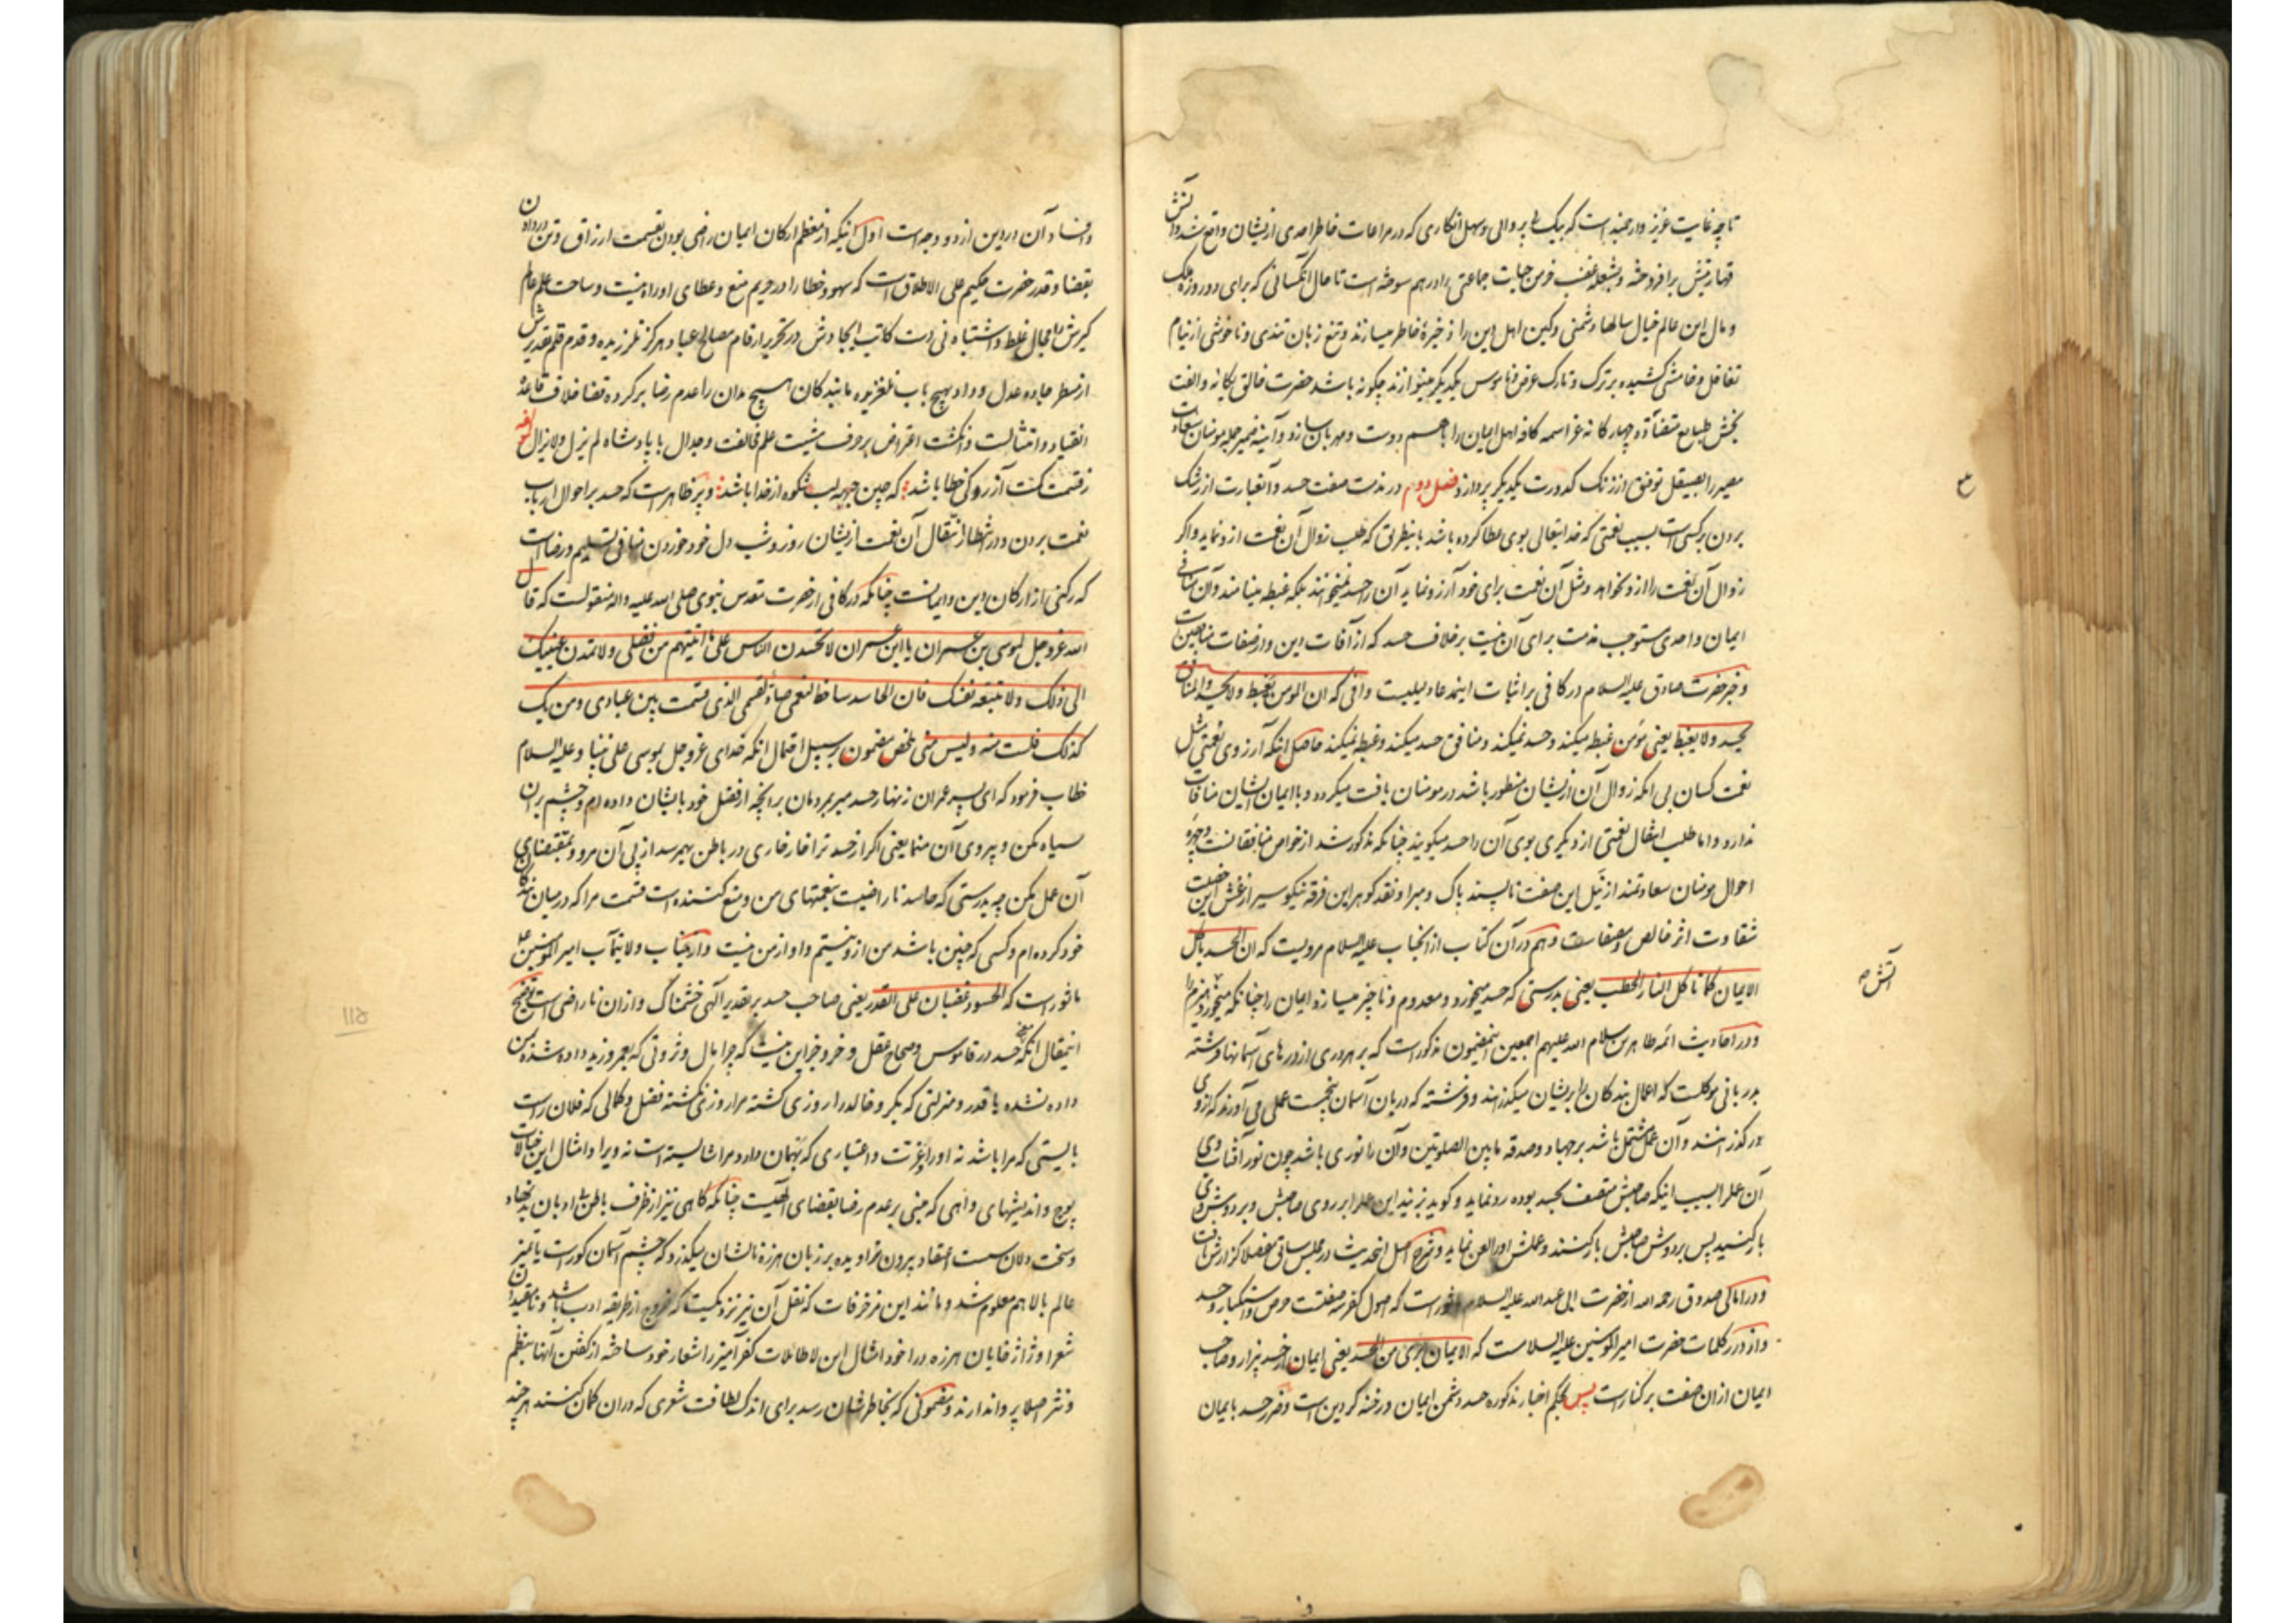 تا چه غایت عزیز و ارجمند است که بیک بی پروائی و سهل انکاری که در مراعات خاطر احدی ازیشان واقع شد و آتش
قهار بتش برافروخته و بشعله غضب خرمن حیات جماعتی را در هم سوخته است تا حال آنکسانی که برای دو روزه ملک
و مال این عالم خیال سالها دشمنی و کین اهل دین را ذخیرهٔ خاطر میسازند و تیغ زبان تندی و ناخوشی از نیام
تغافل و خامشی کشیده بر ترک و تارک عرض و ناموس یکدیگر مینوازند چگونه باشد حضرت خالق یکانه و الفت
بخش طبایع متضاده چهارکانه عز اسمه کافه اهل ایمان را با هم دوست و مهربان سازد و آینه ضمیر جمله مومنان سعادت
مصیر را بصیقل توفیق از زنک کدورت یکدیگر پردازد فصل دوم در مذمت صفت حسد و آن عبارت از رشک
بردن بر کسی است بسبب نعمتی که خدایتعالی بوی عطا کرده باشد باینطریق که طلب زوال آن نعمت ازو نماید و اگر
زوال آن نعمت را ازو نخواهد و مثل آن نعمت برای خود آرزو نماید آن را حسد نمیخوانند بلکه غبطه مینامند و آن منافی
ایمان و احدی مستوجب مذمت برای آن نیست بر خلاف حسد که از آفات دین و از صفات منافقین است
و خبر حضرت صادق علیه السلام در کافی بر اثبات اینمدعا دلیلیست وافی که ان المومن یغبط ولا یحسد والمنافق
یحسد ولا یغبط یعنی مؤمن غبطه میکند و حسد نمیکند و منافق حسد میکند و غبطه نمیکند حاصل اینکه آرزوی نعمتی مثل
نعمت کسان بی انکه زوال آن ازیشان منظور باشد در مومنان یافت میگردد و با ایمان ایشان منافات
ندارد و اما طلب انتقال نعمتی از دیگری بوی آن را حسد میگویند چنانکه مذکور شد از خواص منافقانست و چهره
احوال مومنان سعادتمند از نیل این صفت ناپسند پاک و مبرا و نقد کوهر این فرقه نیکو سیر از غش این خصلت
شقاوت اثر خالص و مصفاست و هم در آن کتاب از انجناب علیه السلام مرویست که ان الحسد یاکل
الایمان کما تاکل النار الحطب یعنی بدرستی که حسد میخورد و معدوم و ناچیز میسازد ایمان را چنانکه میخورد هیزم را
آتش
و در احادیث ائمه طاهرین سلام الله علیهم اجمعین اینمضمون مذکور است که بر هر دری از درهای آسمانها فرشته
بدربانی موکلست که اعمال بندکان را بریشان میگذرانند و فرشته که دربان آسمان پنجمست عملی می آورند که از وی
درگذرانند و آن عمل مشتمل باشد بر جهاد و صدقه ما بین الصلوتین و آن را نوری باشد چون نور آفتاب وی
آن عمل را بسبب اینکه صاحبش متصف بحسد بوده رد نماید و گوید بزنید این عمل را بر روی صاحبش و بر دوش وی
بارکنید پس بر دوش صاحبش بارکنند و عملش او را لعن نماید و شرح اصل اینحدیث در مجلس سابق مفصلا گزارش یافت
و در امالی صدوق رحمه الله از حضرت ابی عبدالله علیه السلام ماثور است که اصول کفر سه صفتست حرص و استکبار و حسد
و از درر کلمات حضرت امیرالمومنین علیه السلامست که الایمان بری من الحسد یعنی ایمان از حسد بیزار و صاحب
ایمان ازان صفت بر کنار است پس بحکم اخبار مذکوره حسد دشمن ایمان و رخنه گر دین است و ضرر حسد بایمان
و افساد آن در دین از دو وجه است اول اینکه از معظم ارکان ایمان راضی بودن بقسمت ارزاق و تن در دادن
بقضا و قدر حضرت حکیم علی الاطلاق است که سهو و خطا را در حریم منع و عطای او راه نیست و ساحت علم عالم
کیرش را مجال غلط و اشتباه نی دست کاتب ایجادش در تحریر ارقام مصالح عباد هرگز نلرزیده و قدم قلم تقدیرش
از مسطر جاده عدل و داد بهیچ باب نلغزیده ما بندکان هیچ مدان را عدم رضا بر کرده قضا خلاف قاعده
انقیاد و امتثالست و انکشت اعتراض بر حرف مشیت علم مخالفت و جدال با پادشاه لم یزل و لایزال لمؤلفه
ز قسمت کنت آرزو کی خطا باشد که چین جبهه لب شکوه از خدا باشد و پر ظاهر است که حسد بر احوال ارباب
نعمت بردن و در انتظار انتقال آن نعمت ازیشان روز و شب دل خود خوردن منافی تسلیم و رضا است
که رکنی از ارکان دین و ایمانست چنانکه در کافی از حضرت مقدس نبوی صلی الله علیه واله منقولست که قال
الله عز وجل لموسی بن عمران یا ابن عمران لا تحسدن الناس علی ما اتیتهم من فضلی ولا تمدن عینیک
الی ذلک ولا تتبعه نفسک فان الحاسد ساخط لنعمی صاد لقسمی الذی قسمت بین عبادی و من یک
کذلک فلست منه ولیس منی ملخص مضمون بر سبیل احتمال انکه خدای عز وجل بموسی علی نبینا و علیه السلام
خطاب فرمود که ای پسر عمران زنهار حسد مبر بر مردمان بر انچه از فضل خود بایشان داده ام و چشم بران
سیاه مکن و پیروی آن منما یعنی اگر از حسد ترا خارخاری در باطن بهمرسد از پی آن مرو و بمقتضای
آن عمل مکن چه بدرستی که حاسد ناراضیست بنعمتهای من و منع کننده است قسمت مرا که در میان بندکان
خود کرده ام و کسی که چنین باشد من ازو نیستم و او از من نیست و از جناب ولایتمآب امیرالمومنین علیه
ماثور است که الحسود غضبان علی القدر یعنی صاحب حسد بر تقدیر آلهی خشمناک و ازان ناراضی است توضیح
اینمقال انکه حسد در قاموس و صحاح عقل و خرد جز این نیست که چرا مال و ثروتی که بعمرو و زید داده شده بمن
داده نشده یا قدر و منزلتی که بکر و خالد را روزی گشته مرا روزی نگشته فضل و کمالی که فلان راست
بایستی که مرا باشد نه او را و عزت و اعتباری که بهمان دارد مرا شایسته است نه ویرا و امثال این خیالات
پوچ و اندیشهای واهی که مبنی بر عدم رضا بقضای الهیست چنانکه گاهی نیز از ظرف باطن بی ادبان تنک
و سخت دلان سست اعتقاد بیرون تراویده بر زبان هرزه نالشان میگذرد که چشم آسمان کور است یا تمیز
عالم بالا هم معلوم شد و مانند این مزخرفات که نقل آن نیز نزدیکست که خروج از طریقه ادب باشد و نامقیدان
شعرا و ژاژخایان هرزه درا خود امثال این لاطائلات کفرآمیز را شعار خود ساخته از گفتن آنها بنظم
و نثر اصلا پروا ندارند و مضمونی که بخاطر شان رسد برای اندک لطافت شعری که دران گمان کنند هر چند
۱۱۵